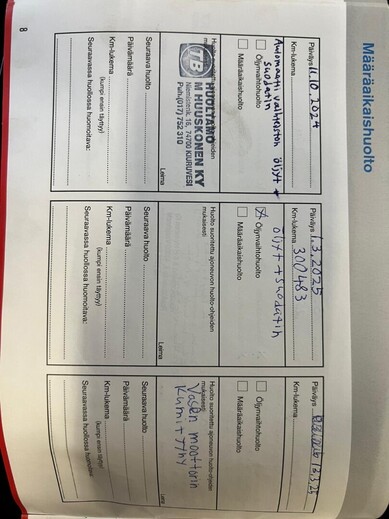 Määräaikaishuolto
Päiväys 11.10.2024
Km-lukema
Öljynvaihtohuolto
Automaatti vaihteiston öljyt +
suodatin
Määräaikaishuolto
Huolto suoritettu ajoneuvon huolto-ohjeiden
mukaisesti
HUOLTAMO
M HUUSKONEN KY
Niemistönk. 16, 74700 KIURUVESI
Puh. (017) 752 310
Leima
Seuraava huolto
Päivämäärä
Km-lukema
(kumpi ensin täyttyy)
Seuraavassa huollossa huomioitava:
Päiväys 1.3.2025
Km-lukema 300483
Öljynvaihtohuolto
öljyt + suodatin
Määräaikaishuolto
Huolto suoritettu ajoneuvon huolto-ohjeiden
mukaisesti
Leima
Seuraava huolto
Päivämäärä
Km-lukema
(kumpi ensin täyttyy)
Seuraavassa huollossa huomioitava:
Päiväys
Km-lukema
Öljynvaihtohuolto
Määräaikaishuolto
Huolto suoritettu ajoneuvon huolto-ohjeiden
mukaisesti
Vasen moottorin
Kumi +
Leima
Seuraava huolto
Päivämäärä
Km-lukema
(kumpi ensin täyttyy)
Seuraavassa huollossa huomioitava:
8